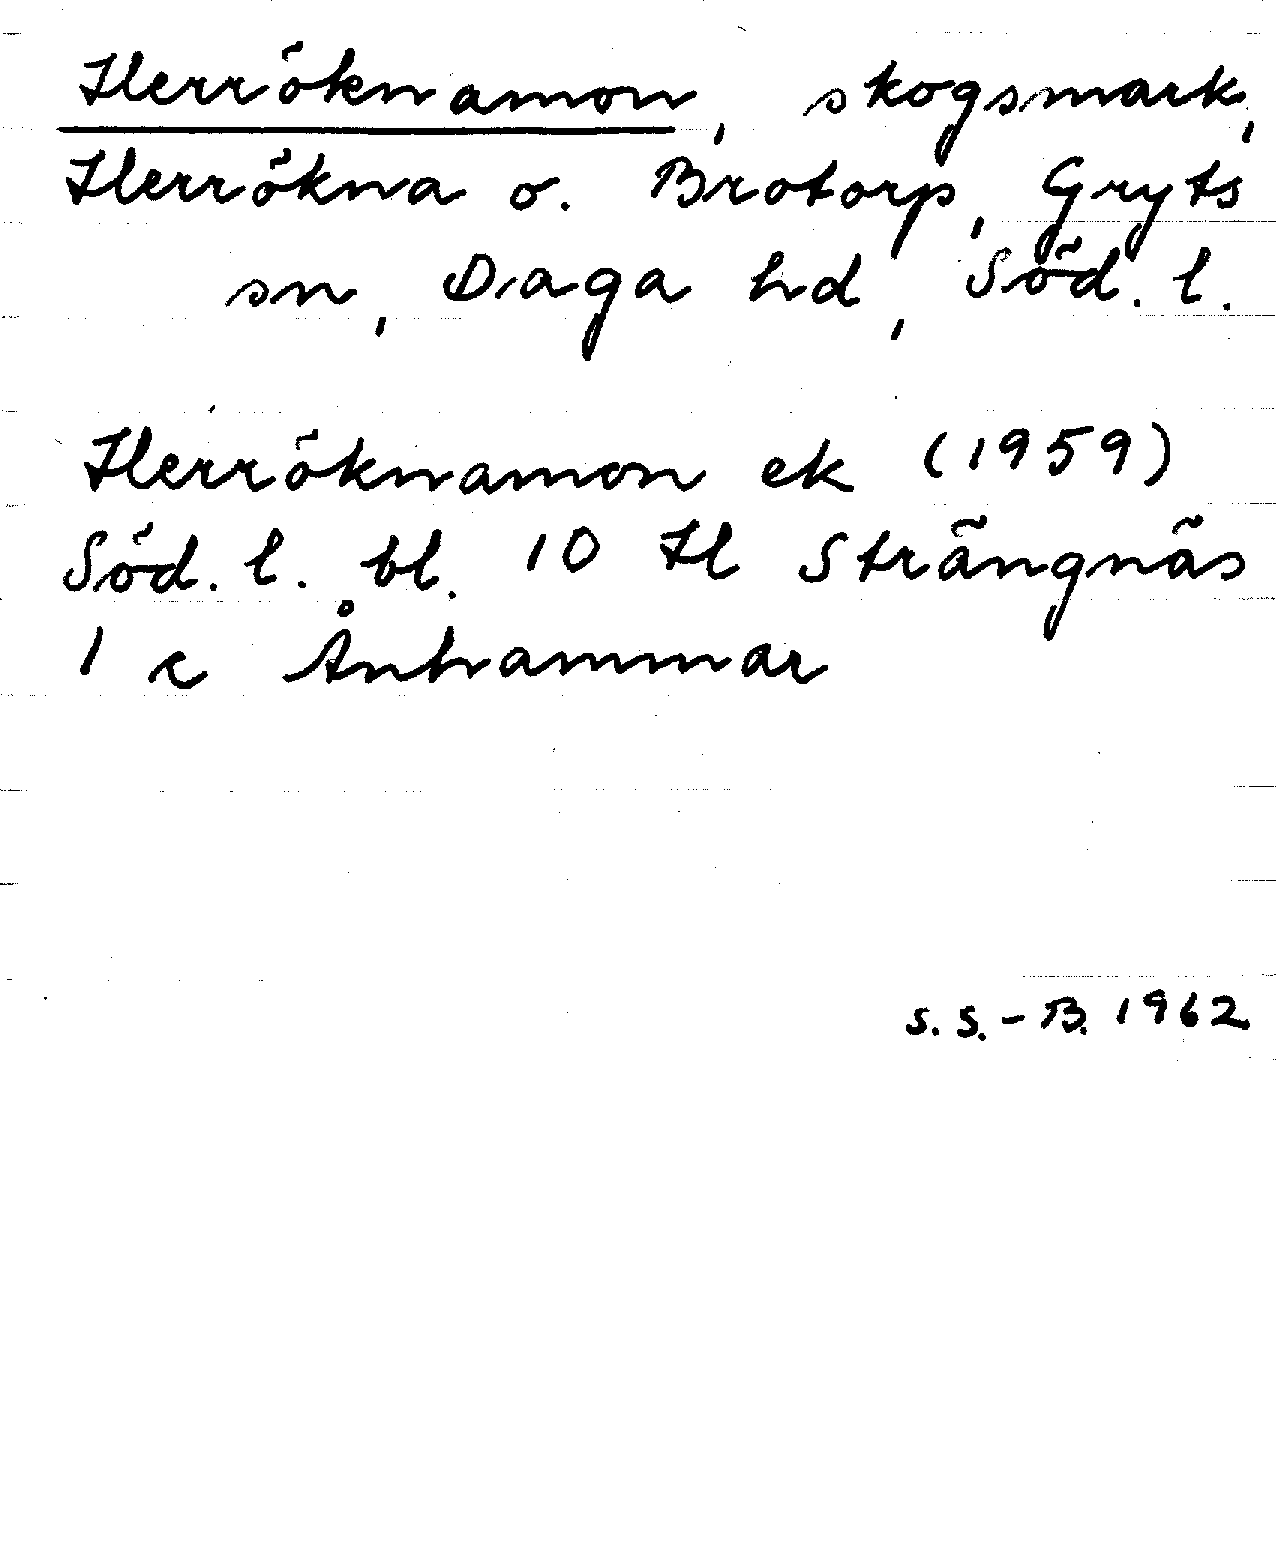 Herröknamon, skogsmark,
Herrökna o. Brotorp, Gryts
sn, Daga hd, Söd. l.
Herröknamon ek (1959)
Söd. l. bl. 10 H Strängnäs
1 c Ånhammar
S. S.-B. 1962